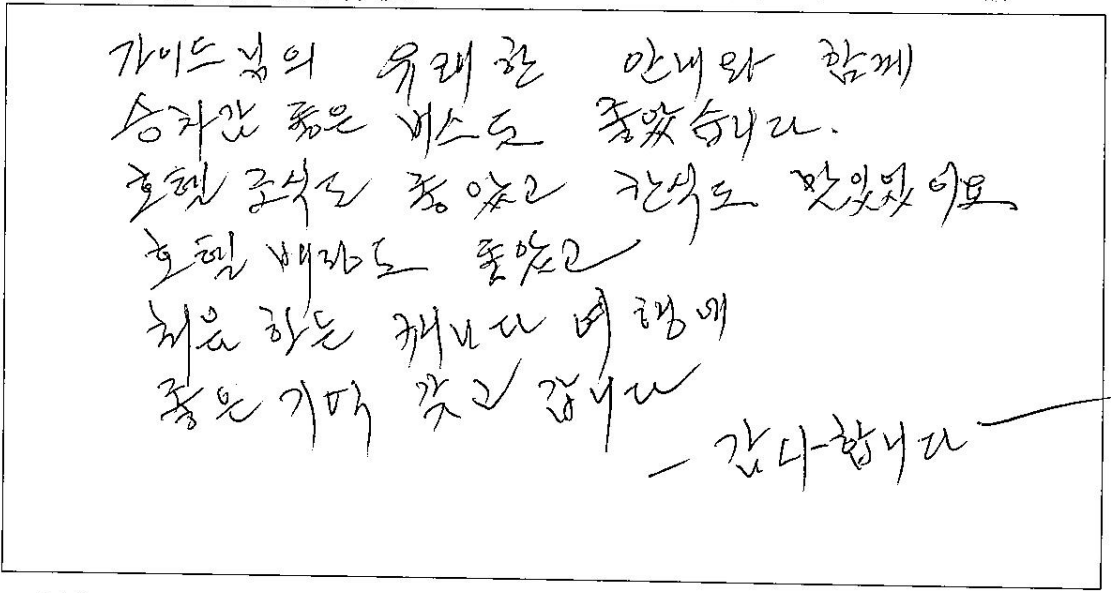 가이드님의 유쾌한 안내와 함께
승차감 좋은 버스도 좋았습니다.
호텔 조식도 좋았고 간식도 맛있었어요
호텔 도 좋았고
처음 하는 캐나다 여행에
좋은 기억 갖고 갑니다
- 감사합니다 -